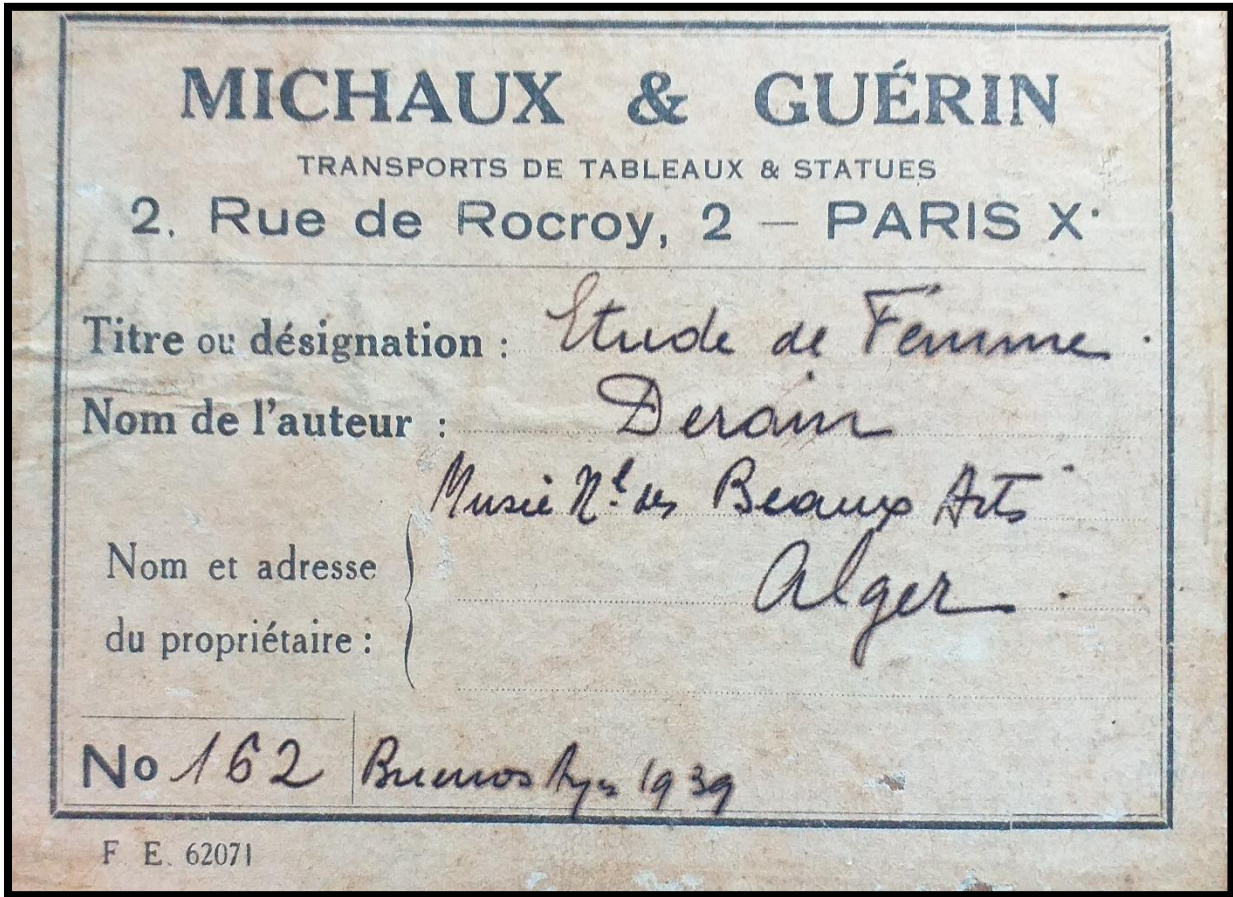 MICHAUX & GUÉRIN
TRANSPORTS DE TABLEAUX & STATUES
2, Rue de Rocroy, 2 — PARIS X.
Titre ou désignation : Etude de Femme.
Nom de l'auteur : Derain
Musée N.l des Beaux Arts
Nom et adresse
Alger.
du propriétaire :
No 162 Buenos Ayres 1939
F. E. 62071